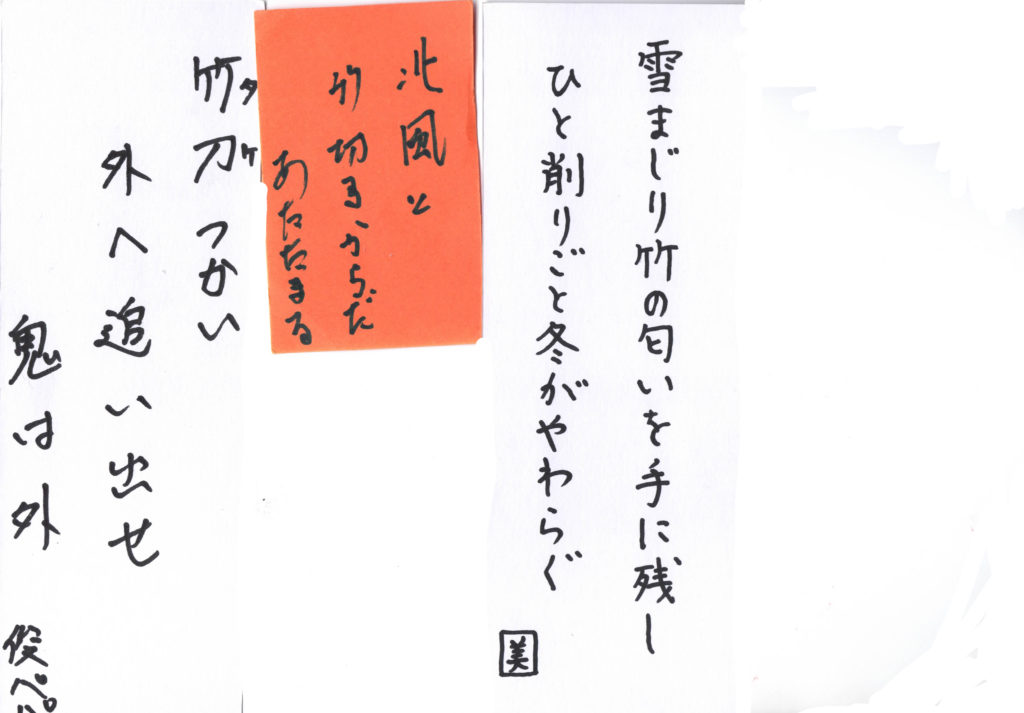 雪まじり竹の匂いを手に残し
ひと削りごと冬がやわらぐ
美
北風と
竹切る、からだ
あたたまる
竹刀つかい
タケ
外へ追い出せ
鬼は外